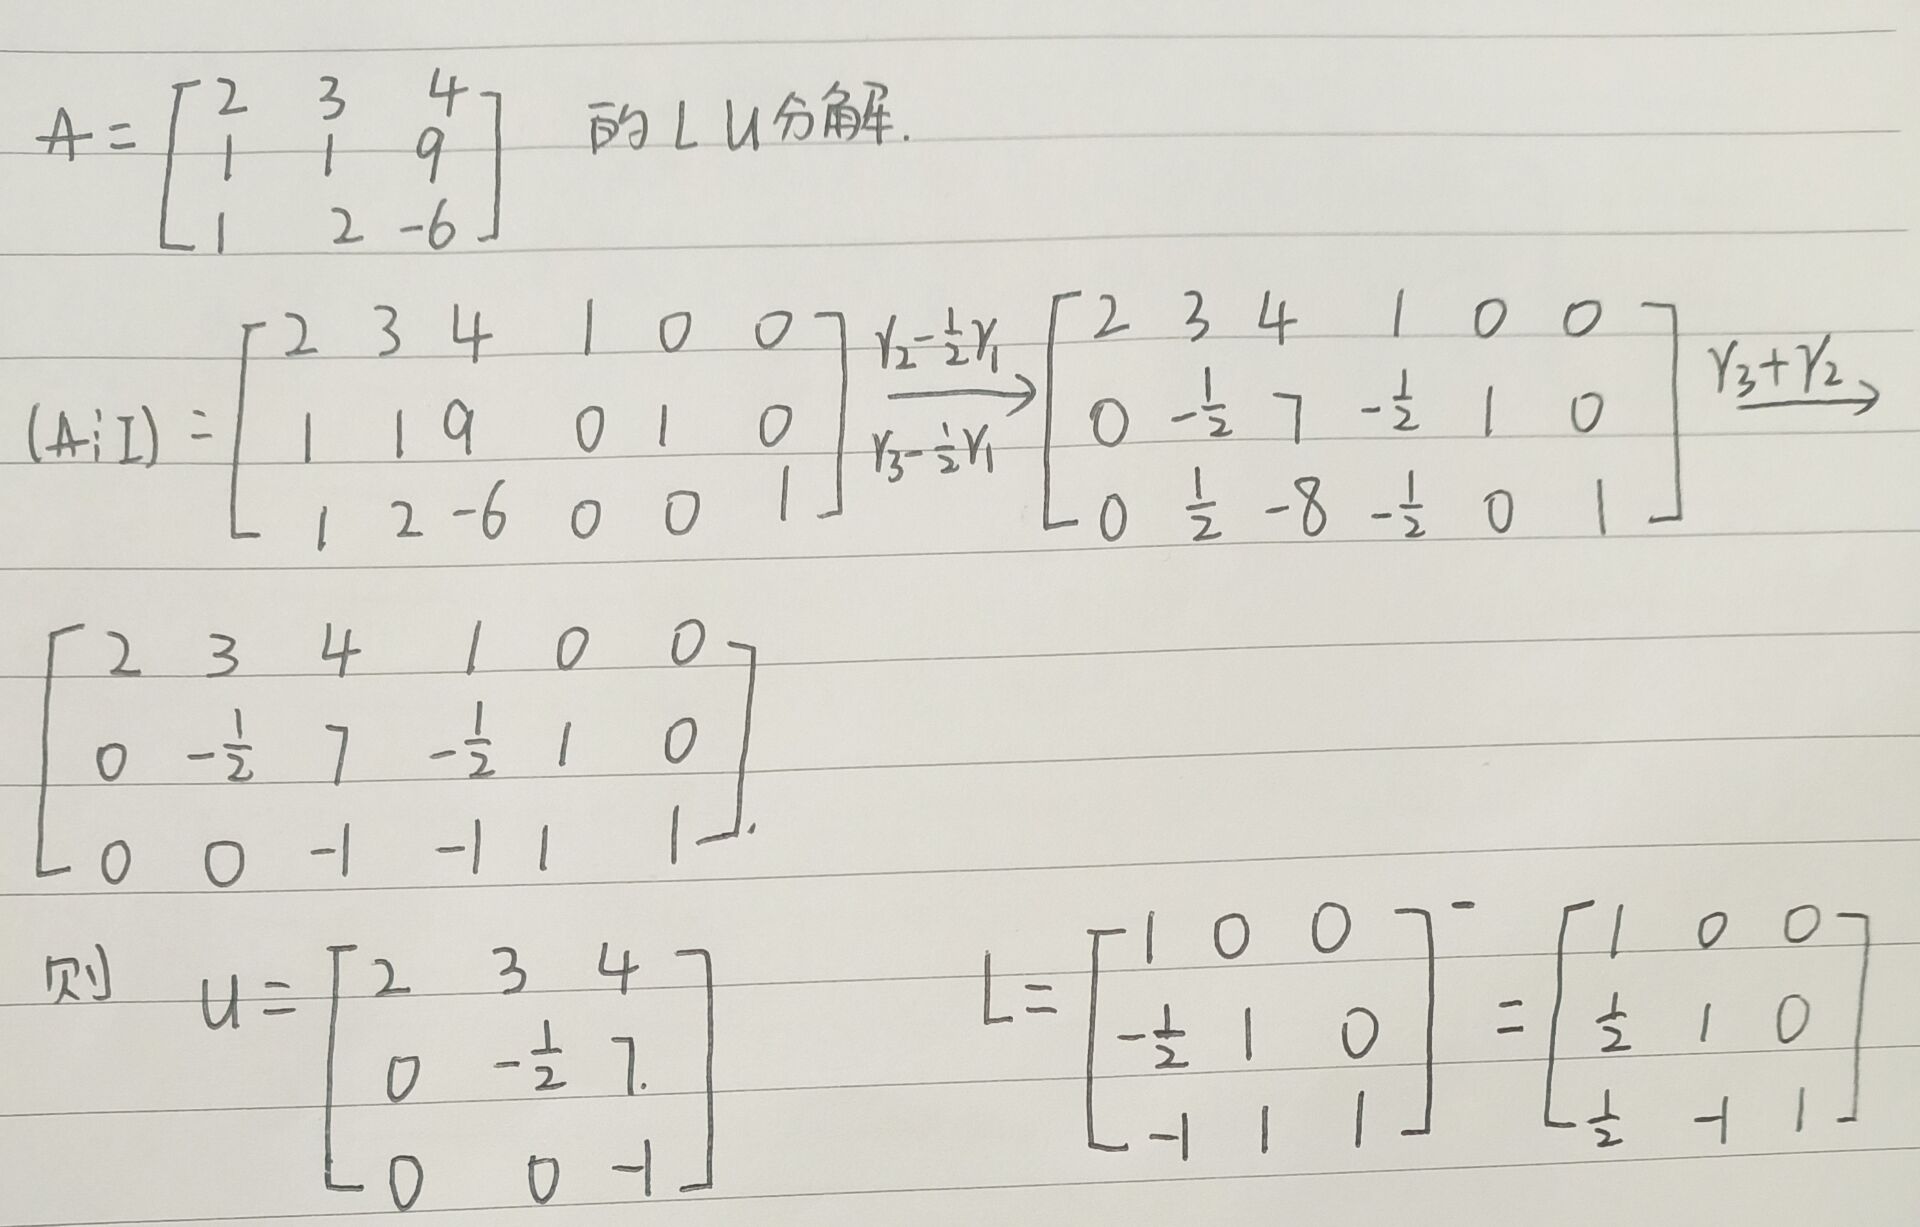 A = [2 3 4; 1 1 9; 1 2 -6] 的 LU分解.
(A¦I) = [2 3 4 1 0 0; 1 1 9 0 1 0; 1 2 -6 0 0 1] r₂-½r₁ r₃-½r₁ → [2 3 4 1 0 0; 0 -½ 7 -½ 1 0; 0 ½ -8 -½ 0 1] r₃+r₂ →
[2 3 4 1 0 0; 0 -½ 7 -½ 1 0; 0 0 -1 -1 1 1].
则 U = [2 3 4; 0 -½ 7.; 0 0 -1] L = [1 0 0; -½ 1 0; -1 1 1]⁻ = [1 0 0; ½ 1 0; ½ -1 1]